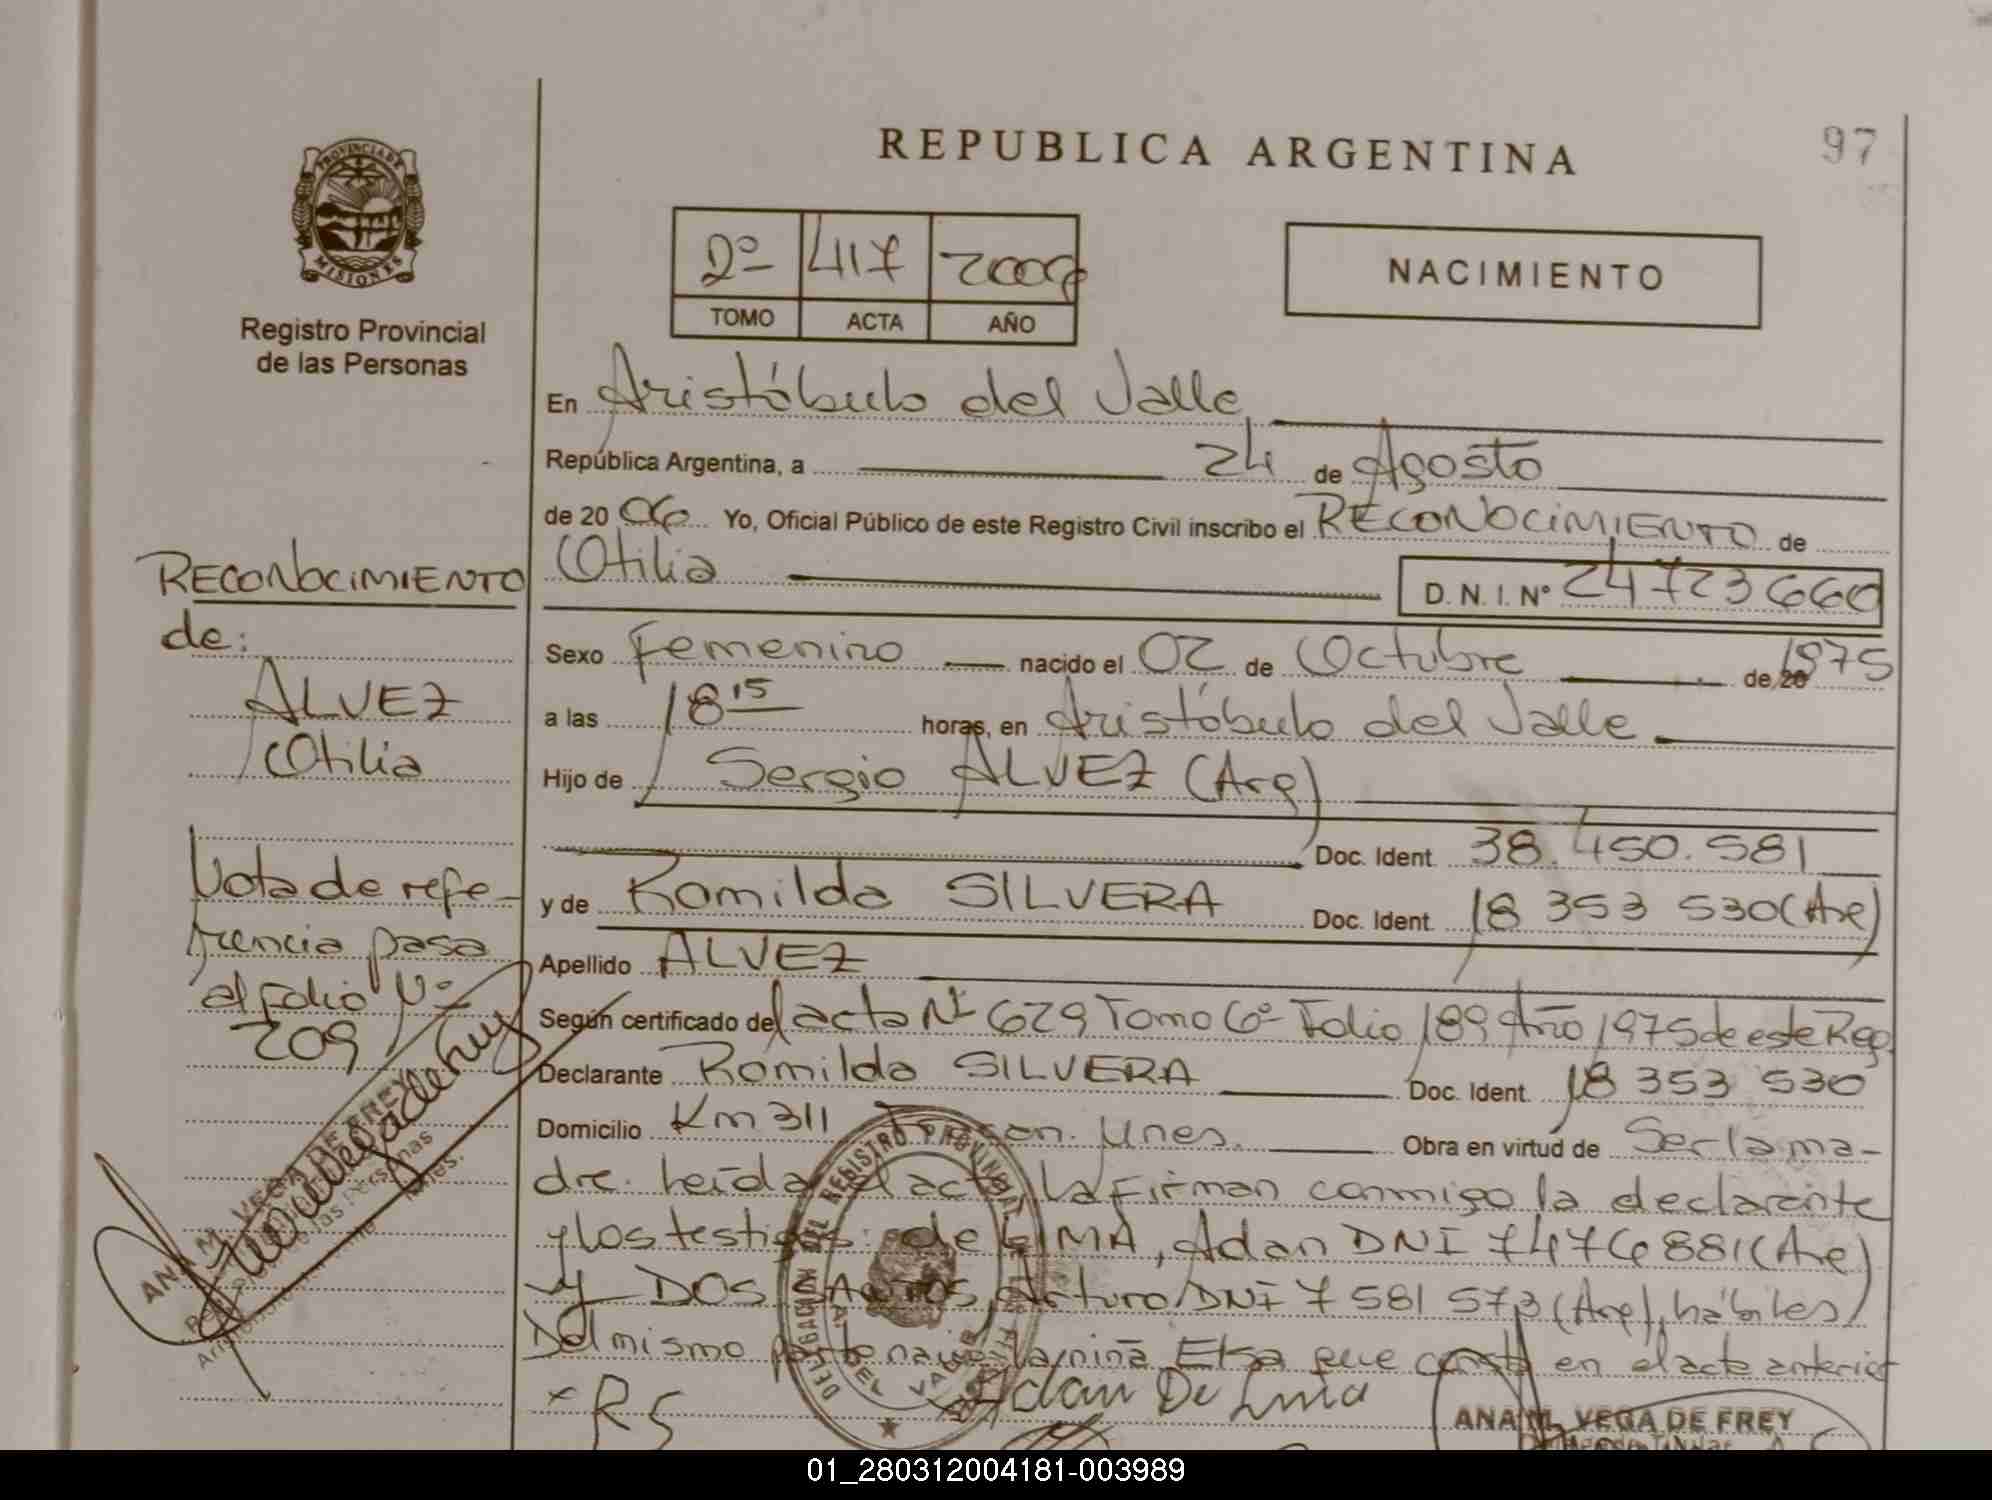 REPUBLICA ARGENTINA
97
PROVINCIA DE MISIONES
Registro Provincial
de las Personas
2º 417 2006
TOMO ACTA AÑO
NACIMIENTO
En Aristóbulo del Valle
República Argentina, a 24 de Agosto
de 20 06 Yo, Oficial Público de este Registro Civil inscribo el RECONOCIMIENTO de
Otilia D. N. I. Nº 24723660
Sexo Femenino nacido el 02 de Octubre de 20 1975
a las 18 15 horas, en Aristóbulo del Valle
Hijo de Sergio ALVEZ (Arg)
Doc. Ident. 38.450.581
y de Romilda SILVERA Doc. Ident. 18 353 530 (Arg)
Apellido ALVEZ
Según certificado del acta Nº 629 Tomo 6º Folio 189 Año 1975 de este Reg.
Declarante Romilda SILVERA Doc. Ident. 18 353 530
Domicilio Km 311 Obra en virtud de Ser la ma-
dre. Leída el acta, La Firman conmigo la declarante
y los testigos: de LIMA, Adan DNI 7476881 (Arg)
y DOS SANTOS, Arturo DNI 7 581 573 (Arg), hábiles
Del mismo parto nació la niña Elsa que consta en el acta anterior
x RS Adan De Lima
ANA M. VEGA DE FREY
RECONOCIMIENTO
de:
ALVEZ
Otilia
Nota de refe-
rencia pasa
al folio Nº
209
ANA M. VEGA DE FREY
DELEGACION DEL REGISTRO PROVINCIAL
01_280312004181-003989